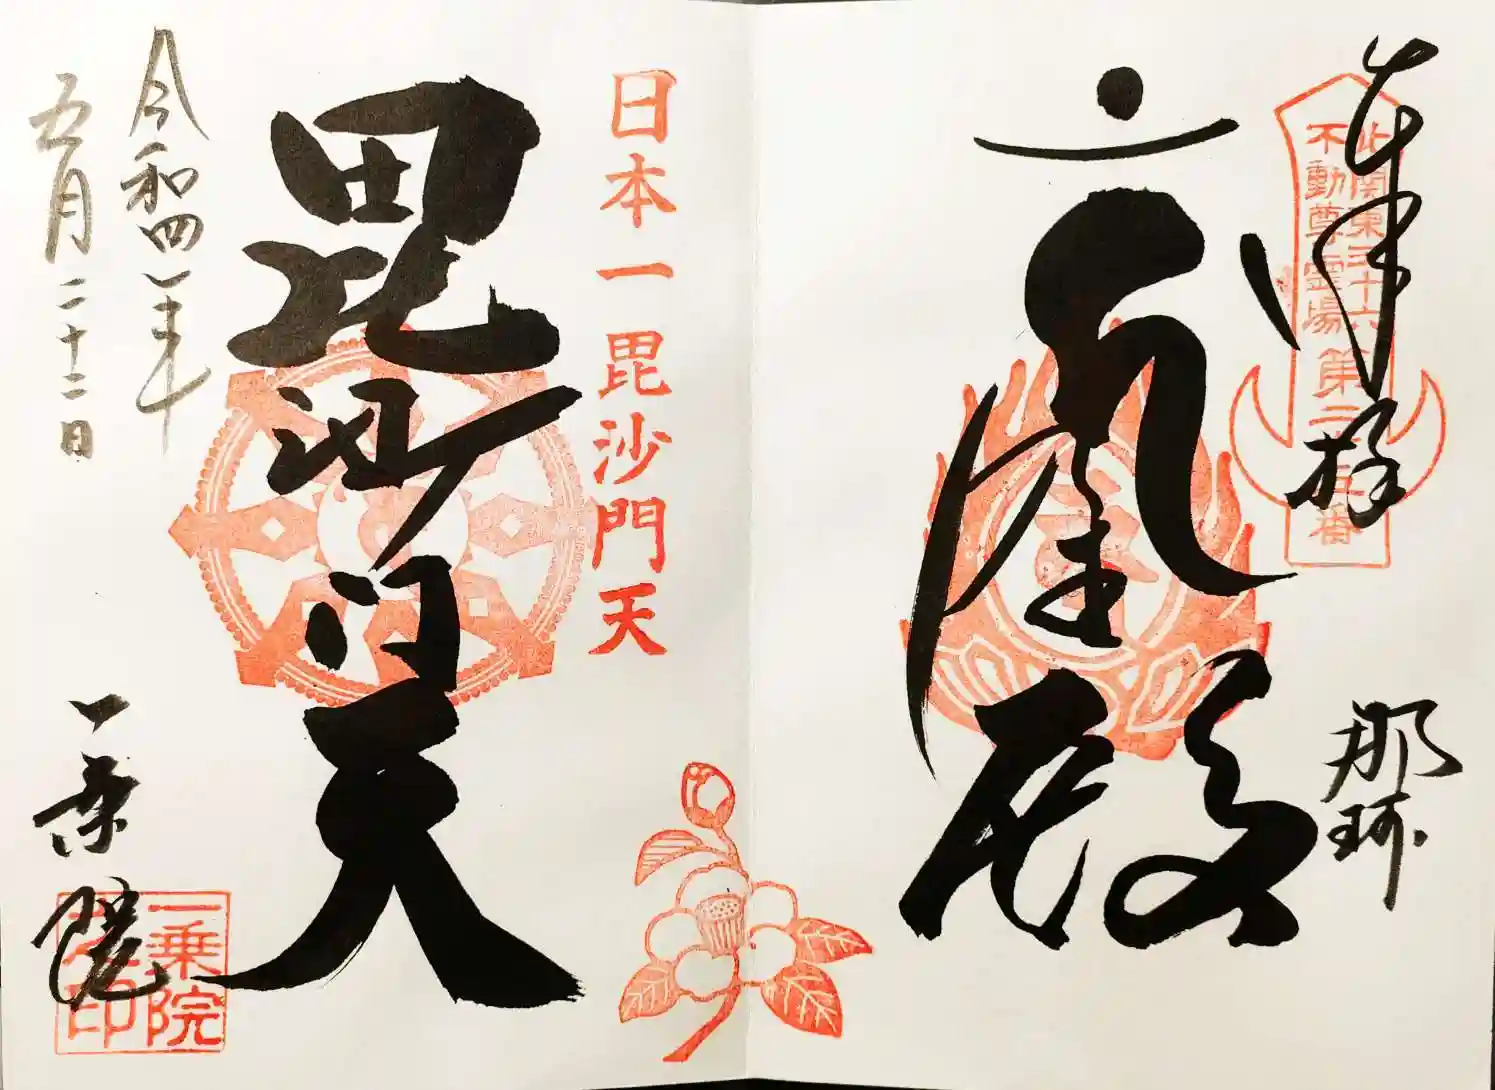 奉拝
北関東三十六
不動尊霊場
第三十三番
那珂
殿
日本一毘沙門天
毘沙門天
令和四年
五月二十二日
一乗院
一乗院
印